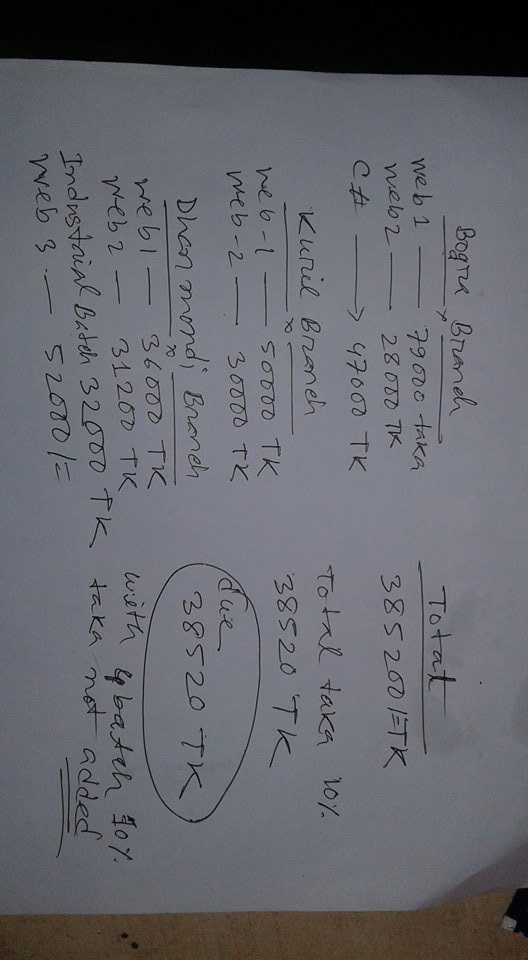 Bogra Branch
web 1 — 79000 taka
web 2 — 28000 TK
C# → 47000 TK
Kuril Branch
web-1 — 50000 TK
web-2 — 30000 TK
Dhanmondi Branch
web1 — 36000 TK
web2 — 31200 TK
Industrial Batch 32000 TK
web 3 — 52000/=
Total
385200/=TK
Total taka 10%
38520 TK
due
38520 TK
with batch 10%
taka not added